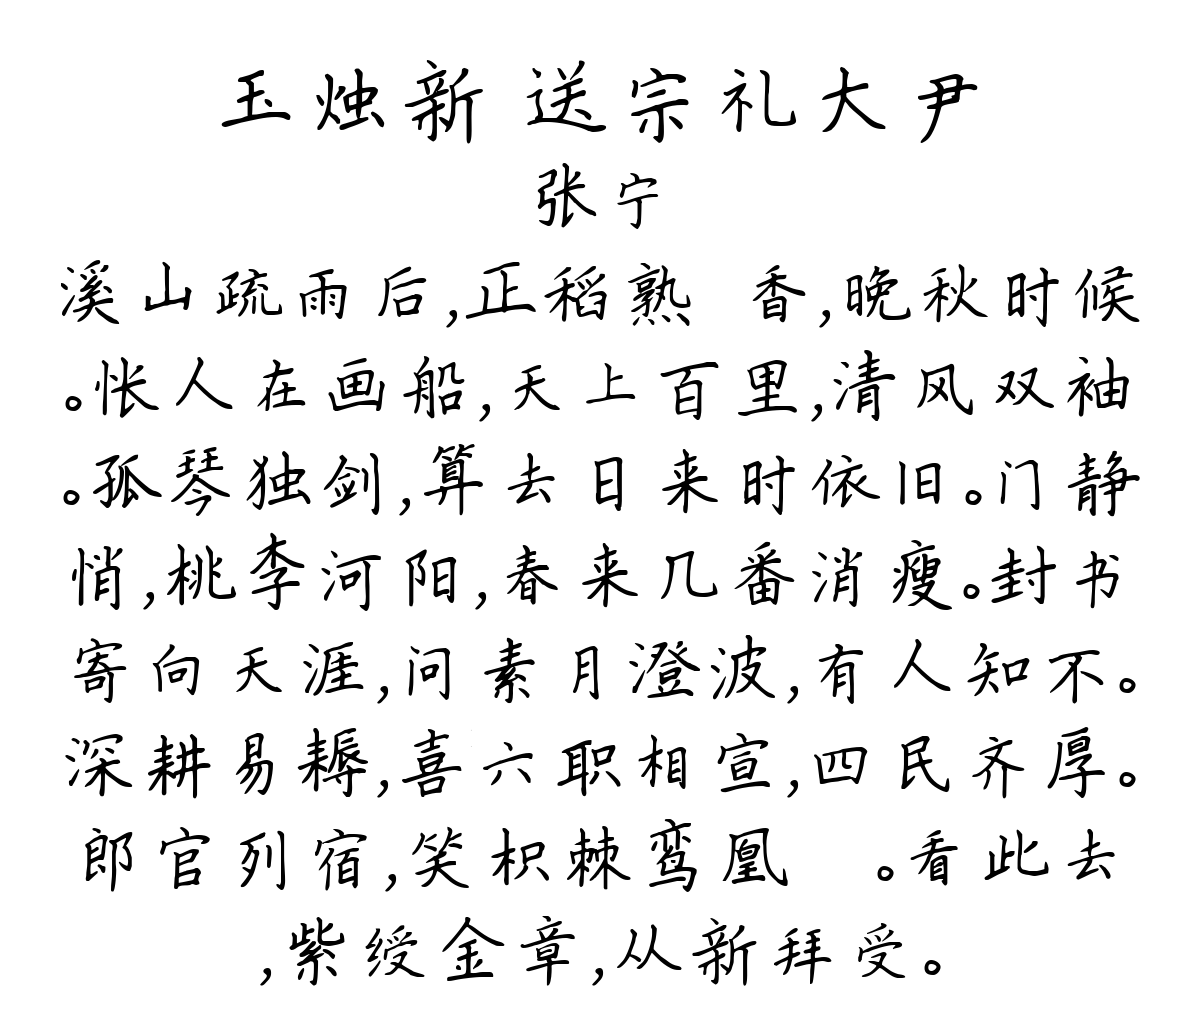 玉烛新 送宗礼大尹
张宁
溪山疏雨后,正稻熟 香,晚秋时候
。怅人在画船,天上百里,清风双袖
。孤琴独剑,算去日来时依旧。门静
悄,桃李河阳,春来几番消瘦。封书
寄向天涯,问素月澄波,有人知不。
深耕易耨,喜六职相宣,四民齐厚。
郎官列宿,笑枳棘鸾凰 。看此去
,紫绶金章,从新拜受。